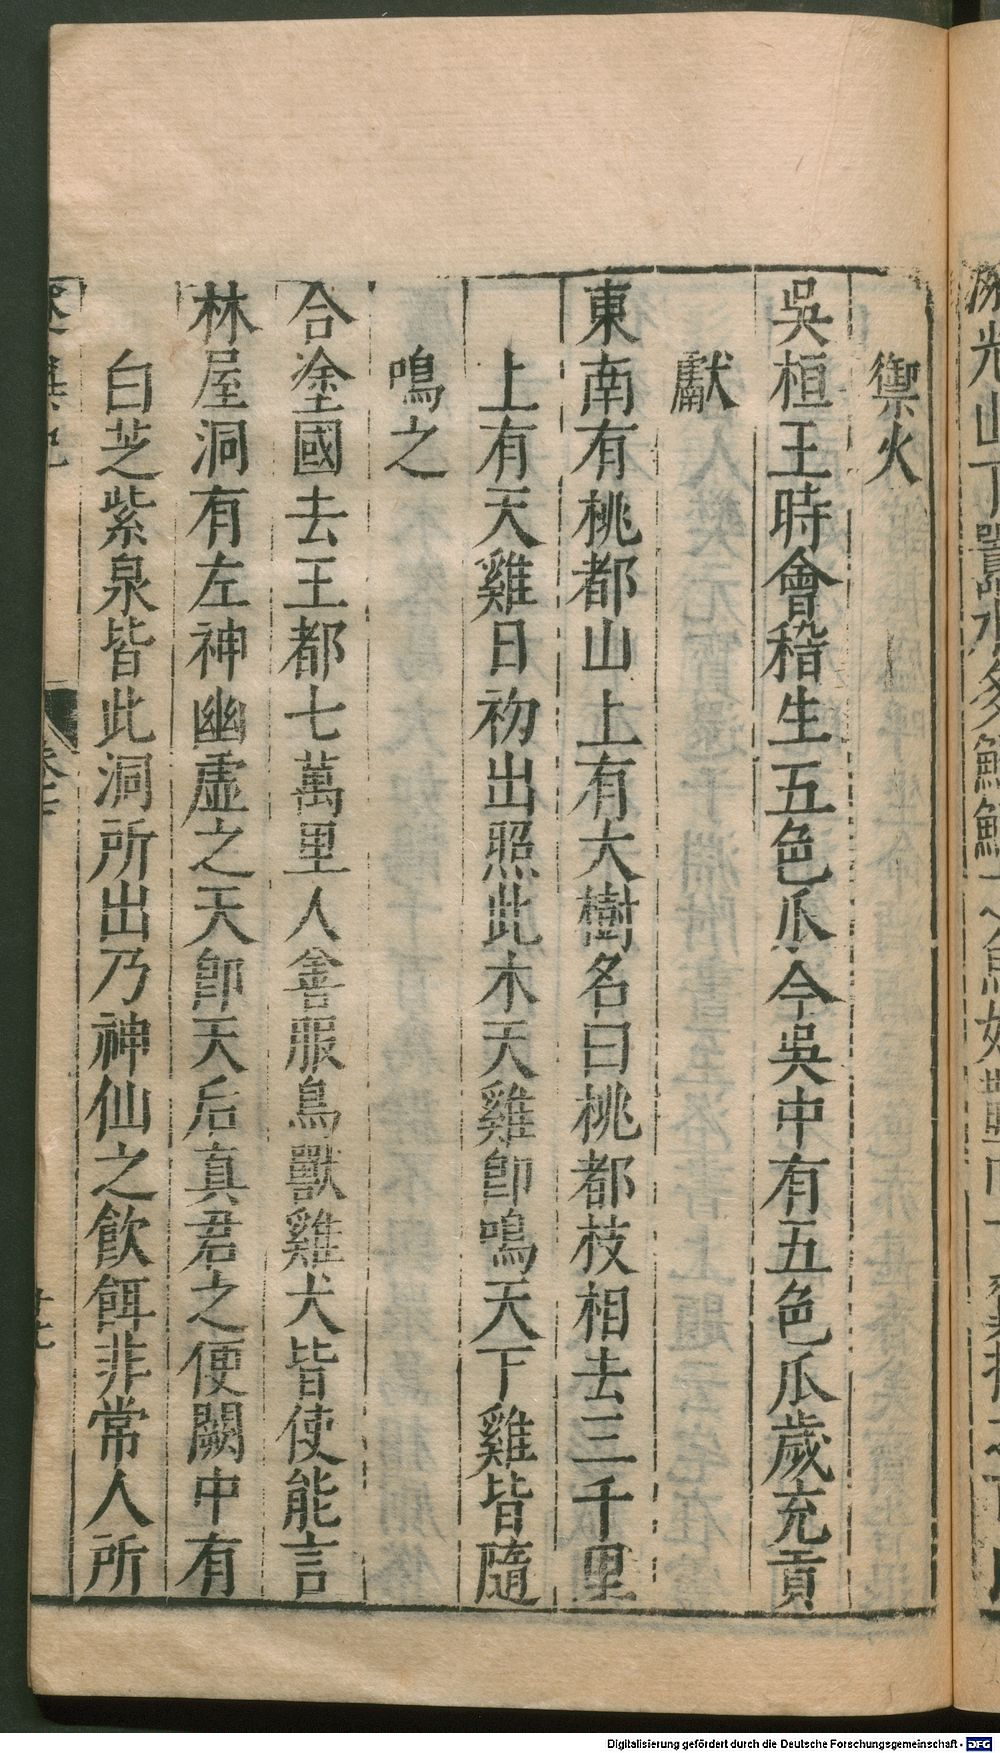 禦火
吳桓王時會稽生五色瓜今吳中有五色瓜歲充貢
獻
東南有桃都山上有大樹名曰桃都枝相去三千里
上有天雞日初出照此木天雞即鳴天下雞皆隨
鳴之
合塗國去王都七萬里人善服鳥獸雞犬皆使能言
林屋洞有左神幽虛之天即天后真君之便闕中有
白芝紫泉皆此洞所出乃神仙之飲餌非常人所
Digitalisierung gefördert durch die Deutsche Forschungsgemeinschaft - DFG